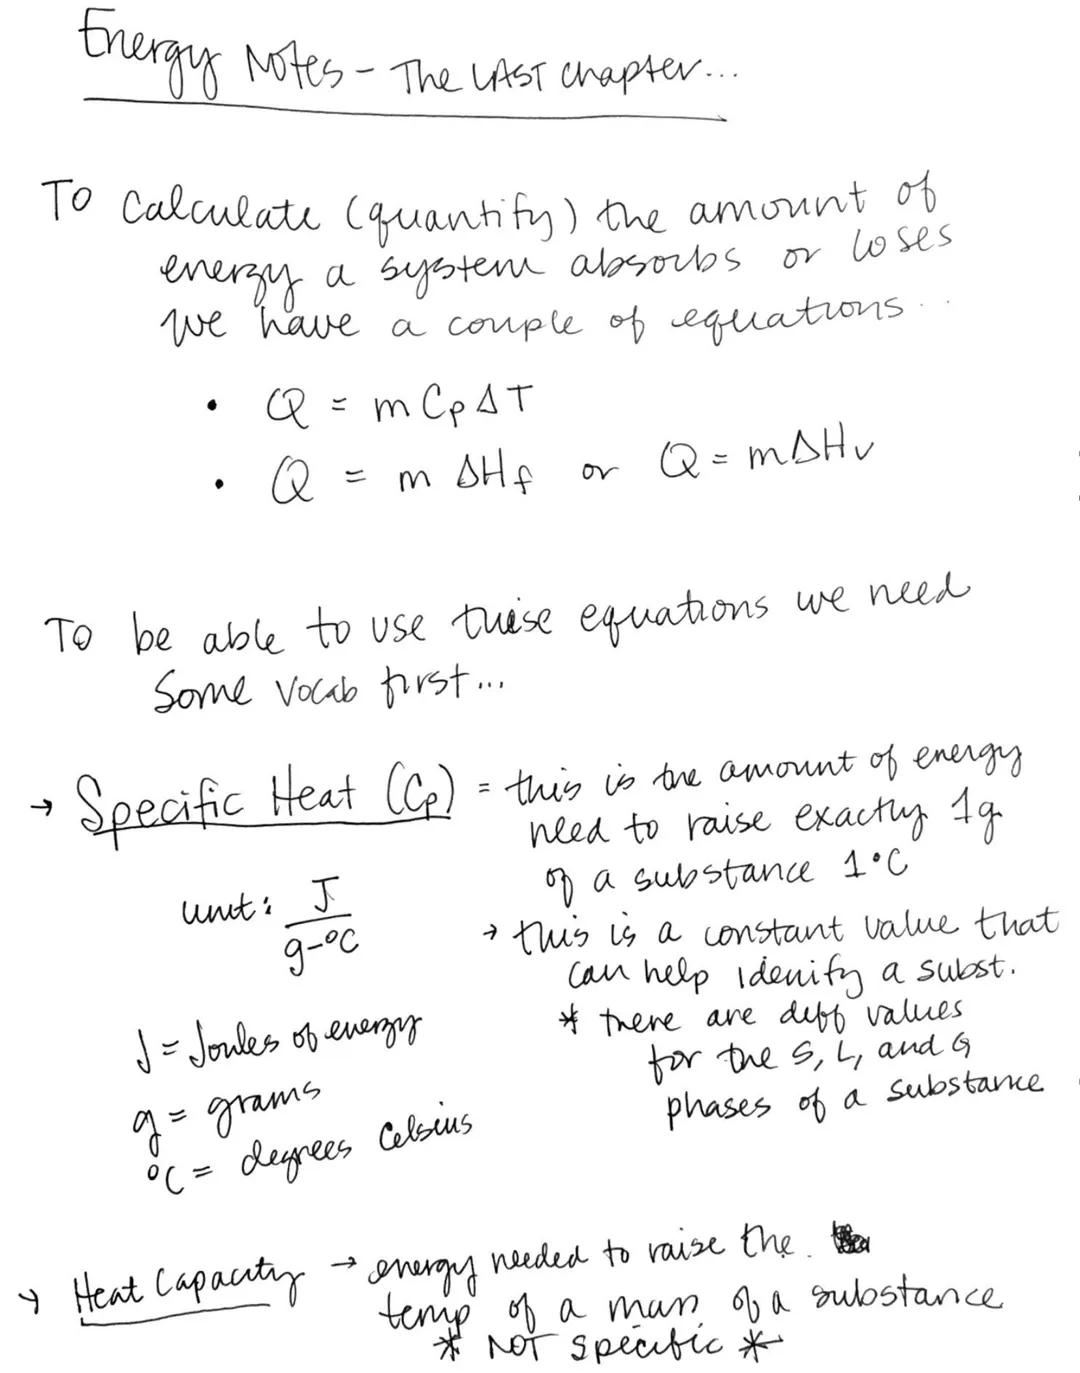 Energy Notes - The LAST chapter...
To Calculate (quantify) the amount of
energy a system absorbs or loses
we have a couple of equations...
• Q = mCpΔT
• Q = mΔHf or Q = mΔHv
To be able to use these equations we need
Some vocab first...
→ Specific Heat (Cp) = this is the amount of energy
need to raise exactly 1g
of a substance 1°C
unit: J/g-°C
→ this is a constant value that
can help idenify a subst.
* there are diff values
for the S, L, and G
phases of a substance
J = Joules of energy
g = grams
°C = degrees Celsius
→ Heat Capacity → energy needed to raise the
temp of a mass of a substance
* NOT specific *